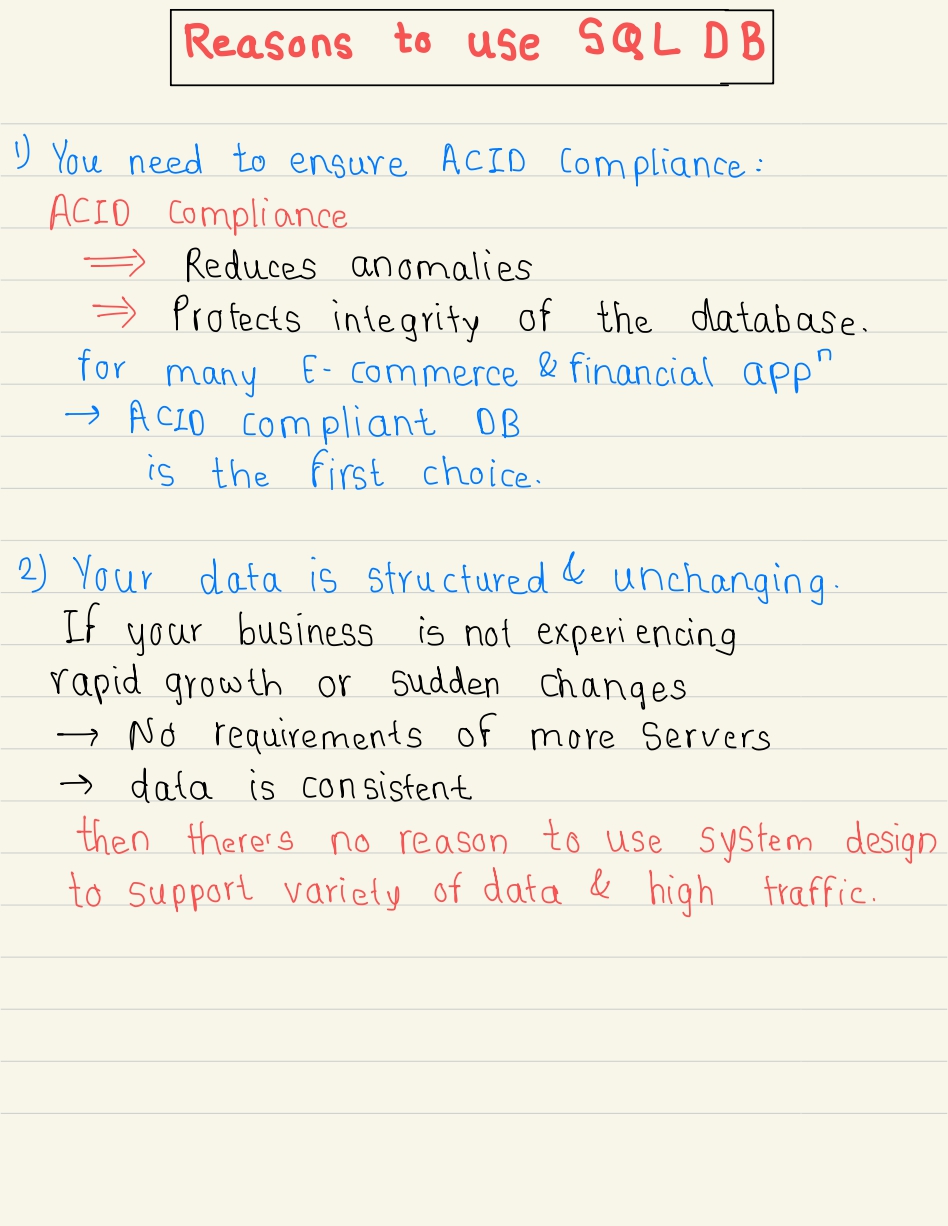 Reasons to use SQL DB
1) You need to ensure ACID Compliance:
ACID Compliance
⇒ Reduces anomalies
⇒ Protects integrity of the database.
for many E-commerce & financial appⁿ
→ ACID compliant DB
is the first choice.
2) Your data is structured & unchanging.
If your business is not experiencing
rapid growth or sudden changes
→ No requirements of more Servers
→ data is consistent
then there's no reason to use system design
to support variety of data & high traffic.